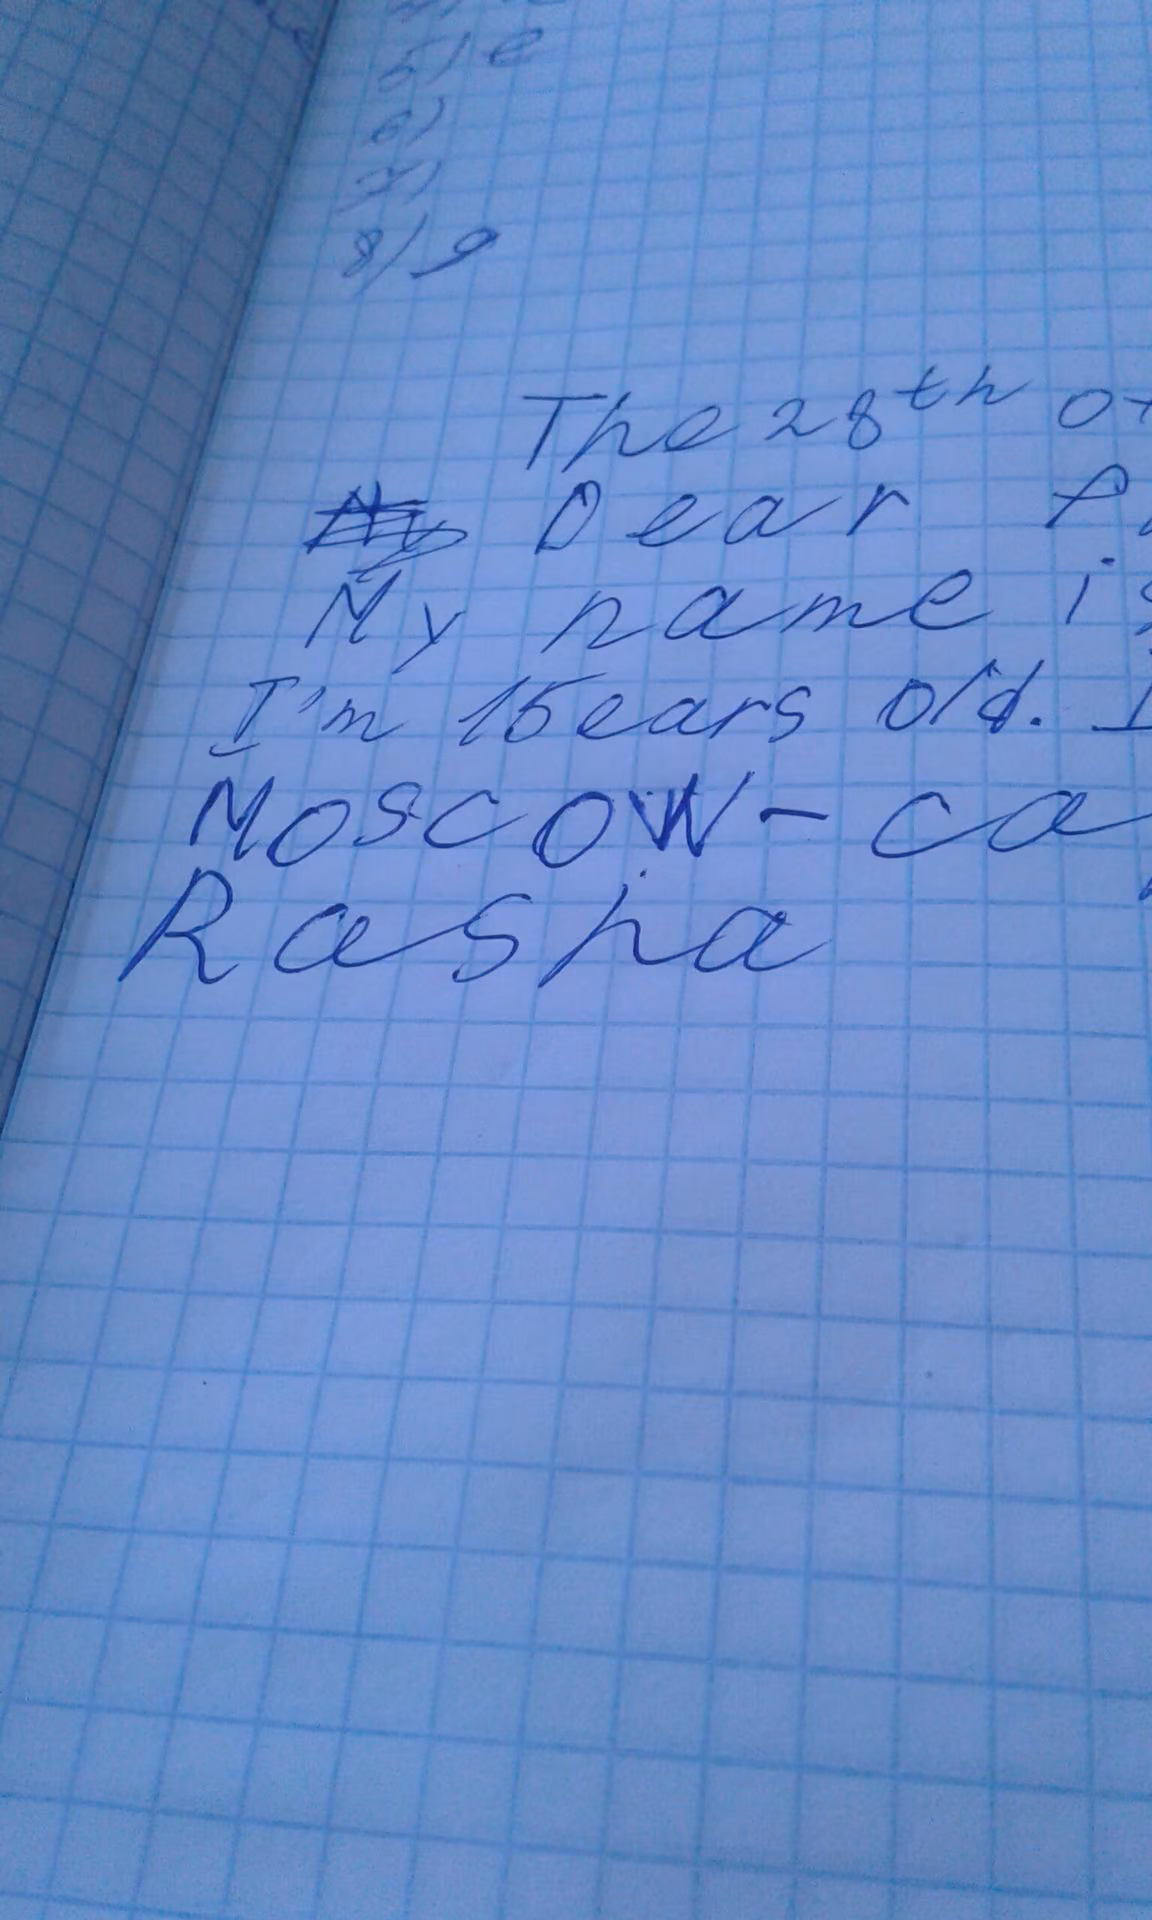 5) e
6)
7)
8) 9
The 28th of
Dear
My name is
I'm 15ears old. I
Moscow - ca
Rasha